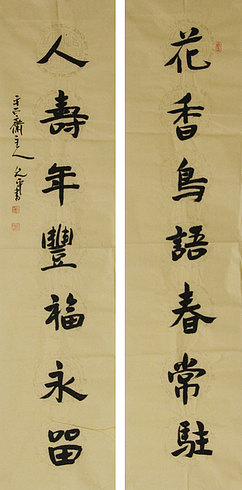 花香鳥語春常駐
人壽年豐福永留